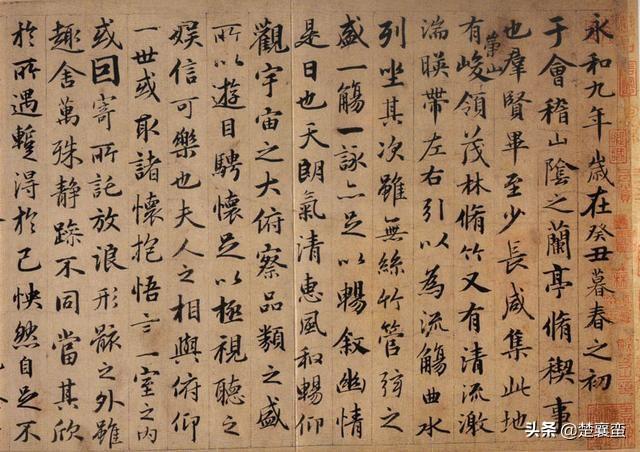 永和九年歲在癸丑暮春之初
于會稽山陰之蘭亭脩稧事
也羣賢畢至少長咸集此地
有崇山峻領茂林脩竹又有清流激
湍暎帶左右引以為流觴曲水
列坐其次雖無絲竹管弦之
盛一觴一詠亦足以暢叙幽情
是日也天朗氣清惠風和暢仰
觀宇宙之大俯察品類之盛
所以遊目騁懷足以極視聽之
娛信可樂也夫人之相與俯仰
一世或取諸懷抱悟言一室之內
或因寄所託放浪形骸之外雖
趣舍萬殊静躁不同當其欣
於所遇蹔得於己怏然自足不
头条 @楚襄蛮